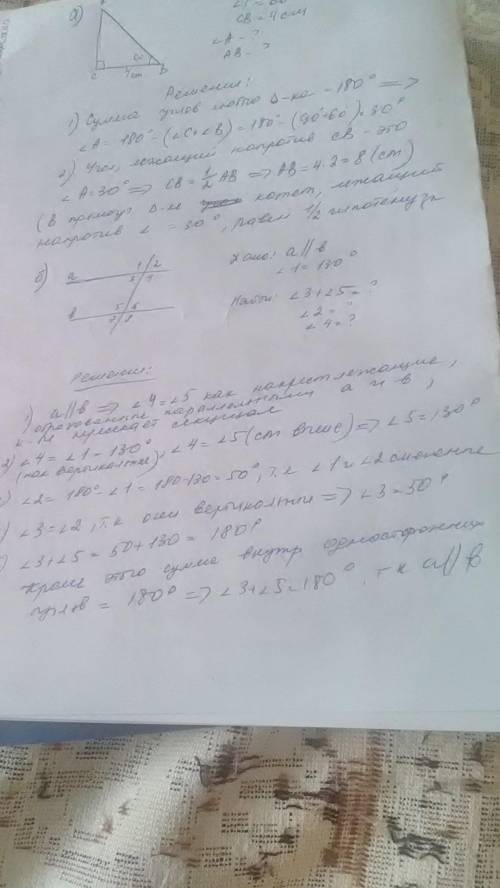 а)
60
С 4см В
СВ = 4 см
∠А - ?
АВ - ?
Решение:
1) Сумма углов любого Δ-ка - 180° =>
∠А = 180° - (∠С+∠В) = 180° - (90°+60°) = 30°
2) Угол, лежащий напротив СВ - это
∠А = 30° => СВ = 1/2 АВ => АВ = 4·2 = 8 (см)
(В прямоуг. Δ-ке катет, лежащий
напротив ∠ = 30°, равен 1/2 гипотенузы
б)
a 1 2
3 4
b 5 6
7 8
Дано: a || b
∠1 = 130°
Найти: ∠3+∠5 = ?
∠2 = ?
∠4 = ?
Решение:
1) a||b => ∠4 = ∠5 как накрестлежащие,
образованные параллельными a и b,
пересекает секущая
2) ∠4 = ∠1 = 130°
(как вертикальные), ∠4 = ∠5 (см выше) => ∠5 = 130°
) ∠2 = 180° - ∠1 = 180 - 130 = 50°, т.к ∠1 и ∠2 смежные
) ∠3 = ∠2, т.к они вертикальны => ∠3 = 50°
) ∠3 + ∠5 = 50 + 130 = 180°
Кроме этого сумма внутр односторонних
углов = 180° => ∠3 + ∠5 = 180°, т к a||b